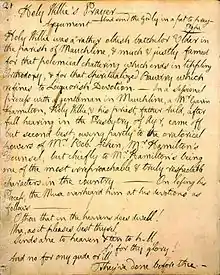 Holy Willie's Prayer —
Argument —
Holy Willie was a rather oldish batchelor Elder in
the parish of Mauchline, & much & justly famed
for that polemical chattering which ends in tippling
Orthodoxy, & for that Spiritualized Bawdry which
refines to Liquorish Devotion. — In a Sessional
Process with a gentleman in Mauchline, a Mr Gavin
Hamilton, Holy Willie, & his priest, father Auld, after
full hearing in the Presbytry of Ayr, came off
but second best; owing partly to the oratorical
powers of Mr Robt Aiken, Mr Hamilton's
Counsel; but chiefly to Mr Hamilton's being
one of the most irreproachable & truly respectable
characters in the country. — On losing his
Process, the Muse overheard him at his devotions as
follows —
O thou that in the heavens does dwell!
Wha, as it pleases best thysel,
Sends ane to heaven & ten to h-ll,
A' for thy glory!
And no for ony gude or ill
They've done before thee. —